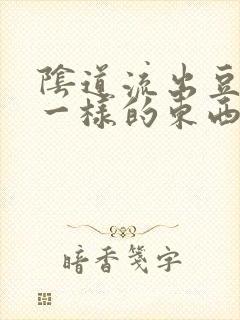 陰道流出豆
一樣的東西
暗香箋字